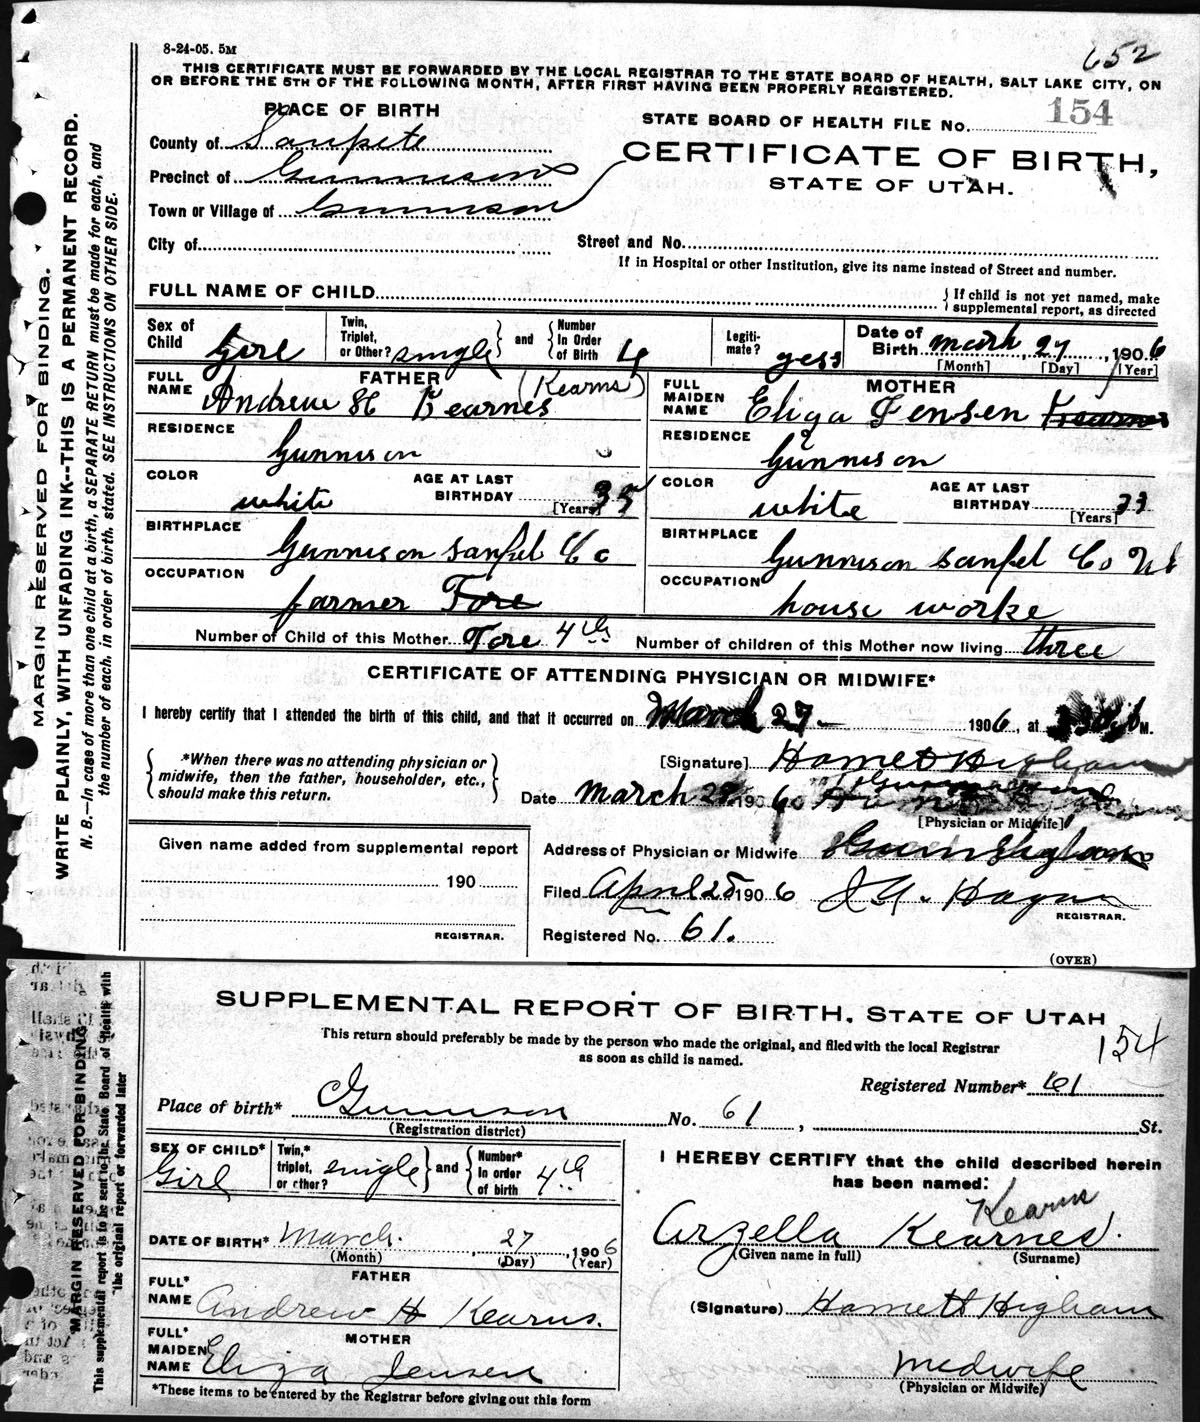 8-24-05. 5M
652
THIS CERTIFICATE MUST BE FORWARDED BY THE LOCAL REGISTRAR TO THE STATE BOARD OF HEALTH, SALT LAKE CITY, ON
OR BEFORE THE 5TH OF THE FOLLOWING MONTH, AFTER FIRST HAVING BEEN PROPERLY REGISTERED.
MARGIN RESERVED FOR BINDING.
WRITE PLAINLY, WITH UNFADING INK--THIS IS A PERMANENT RECORD.
N. B.—In case of more than one child at a birth, a SEPARATE RETURN must be made for each, and
the number of each, in order of birth, stated. SEE INSTRUCTIONS ON OTHER SIDE.
PLACE OF BIRTH
County of Sanpete
Precinct of Gunnison
Town or Village of Gunnison
City of
STATE BOARD OF HEALTH FILE No. 154
CERTIFICATE OF BIRTH,
STATE OF UTAH.
Street and No.
If in Hospital or other Institution, give its name instead of Street and number.
FULL NAME OF CHILD
If child is not yet named, make
supplemental report, as directed
Sex of Child Girl
Twin, Triplet, or Other? single and Number In Order of Birth 4
Legitimate? yess
Date of Birth march 27, 1906
[Month] [Day] [Year]
FATHER
FULL NAME Andrew H Kearnes (Kearns)
RESIDENCE Gunnison
COLOR white
AGE AT LAST BIRTHDAY 35 [Years]
BIRTHPLACE Gunnison sanpet Co
OCCUPATION farmer
MOTHER
FULL MAIDEN NAME Eliza Jensen Kearnes
RESIDENCE Gunnison
COLOR white
AGE AT LAST BIRTHDAY 33 [Years]
BIRTHPLACE Gunnison sanpet Co Ut
OCCUPATION house worke
Number of Child of this Mother Fore 4th Number of children of this Mother now living three
CERTIFICATE OF ATTENDING PHYSICIAN OR MIDWIFE*
I hereby certify that I attended the birth of this child, and that it occurred on March 27 1906, at M.
*When there was no attending physician or
midwife, then the father, householder, etc.,
should make this return.
[Signature] Harnett Higham
Date march 28 1906
[Physician or Midwife]
Address of Physician or Midwife
Given name added from supplemental report
190
REGISTRAR.
Filed April 25 1906
REGISTRAR.
Registered No. 61.
(OVER)
SUPPLEMENTAL REPORT OF BIRTH, STATE OF UTAH
This return should preferably be made by the person who made the original, and filed with the local Registrar
as soon as child is named.
154
MARGIN RESERVED FOR BINDING
This supplemental report is to be sent to the State Board of Health with
the original report or forwarded later
Registered Number* 61
Place of birth* Gunnison No. 61, St.
(Registration district)
SEX OF CHILD* Girl
Twin,* triplet, or other? single and Number* In order of birth 4th
DATE OF BIRTH* March 27, 1906
(Month) (Day) (Year)
FATHER
FULL* NAME Andrew H Kearns.
MOTHER
FULL* MAIDEN NAME Eliza Jensen
*These items to be entered by the Registrar before giving out this form
I HEREBY CERTIFY that the child described herein
has been named:
Kearns
Arzella Kearnes.
(Given name in full) (Surname)
(Signature) Harnett Higham
Medwife
(Physician or Midwife)